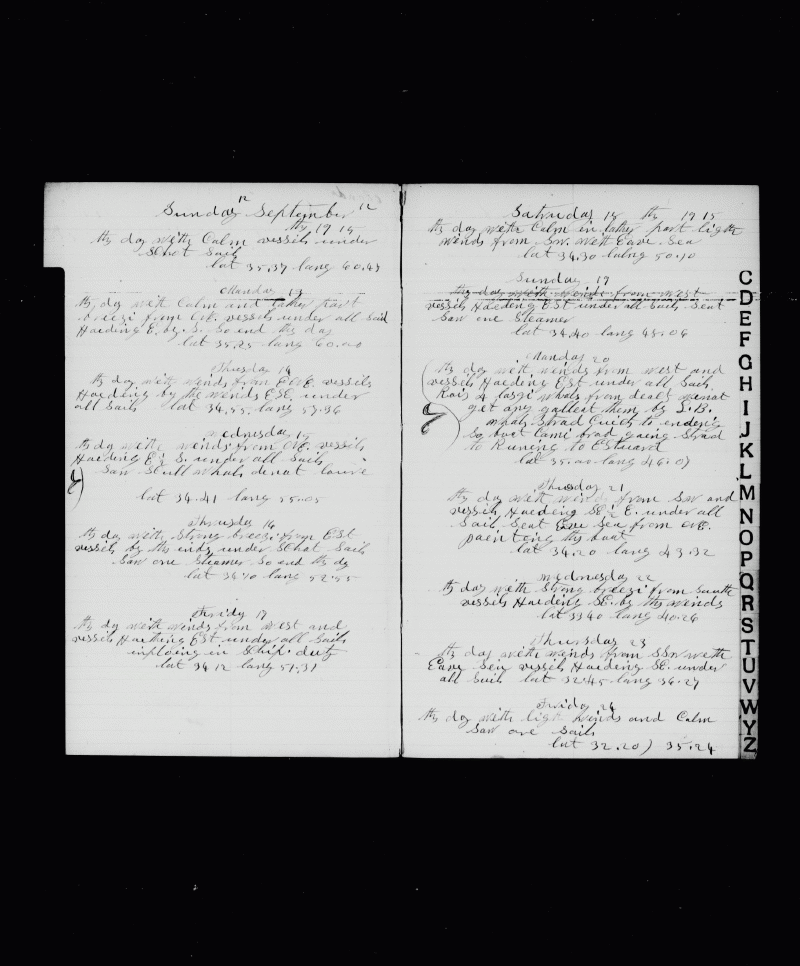 12
Sunday September 12
ths 19 15
ths day with Calm vessils under
Shot Sails
lat 35.37 lang 60.43
Manday 13
ths day weth Calm and lather part
breezi from NE. vessils under all Sail
Haeding E. by S. So end ths day
lat 35.25 lang 60.00
Thusday 14
ths day with winds from ENE. vessils
Haeding by the winds ESE. under
all Sails lat 34.55, lang 57.36
Wednesday 15
ths day with winds from NE. vessils
Haeding E ½ S. under all Sails
Saw Skull whals denat lowre
lat 34.41 lang 55.05
Thursday 16
ths day with Strong breezi from ESt
vessils by ths inds under Shot Sails
Saw one Steamer So end ths dy
lat 34.10 lang 52.55
Friday 17
ths dy with winds from West and
vessils Haething ESt under all Sails
inploing in Ship. duty
lat 34 12 lang 51.31
Saturday 18 ths 1915
ths day with Calm en lather part ligth
winds from SW. with Eave Sea
lat 34.30 lalng 50.10
Sunday 19
ths day with winds from West
vessils Haeding ESt under all Sails Seat
Saw one Steamer
lat 34.40 lang 48.06
Manday 20
ths day with winds from west and
vessils Haeding ESt under all Sails.
Rais 4 largi whals from dealt denat
get any gallest them by L.B.
whals Strad Quick to endeing
So boat Cami brad going Strad
to Runing to EStward
lat 35.00 lang 46.07
Thusday 21
ths day with winds from SW and
vessils Haeding SE ½ E. under all
Sail Seat Eave Sea from NE.
painteng ths boat
lat 34.20 lang 43.32
Wednesday 22
ths day with Strong breezi from South
vessils Haeding SE. by ths winds
lat 33 40 lang 40.26
Thursday 23
ths day with winds from SSW with
Eave Sea vessils Haeding SE. under
all Sails lat 32.45 lang 36.27
Friday 24
ths day with ligth Winds and Calm
Saw one Sails
lat 32.20) 35.24
C
D
E
F
G
H
I
J
K
L
M
N
O
P
Q
R
S
T
U
V
W
Y
Z